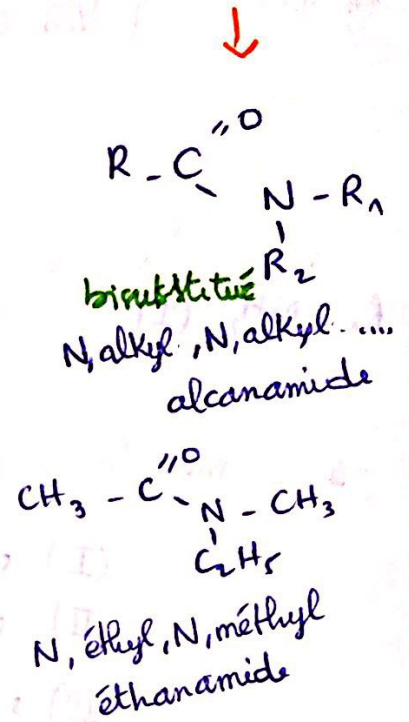 O
R - C
N - R₁
R₂
bisubstitué
N, alkyl, N, alkyl.....
alcanamide
O
CH₃ - C
N - CH₃
C₂H₅
N, éthyl, N, méthyl
éthanamide